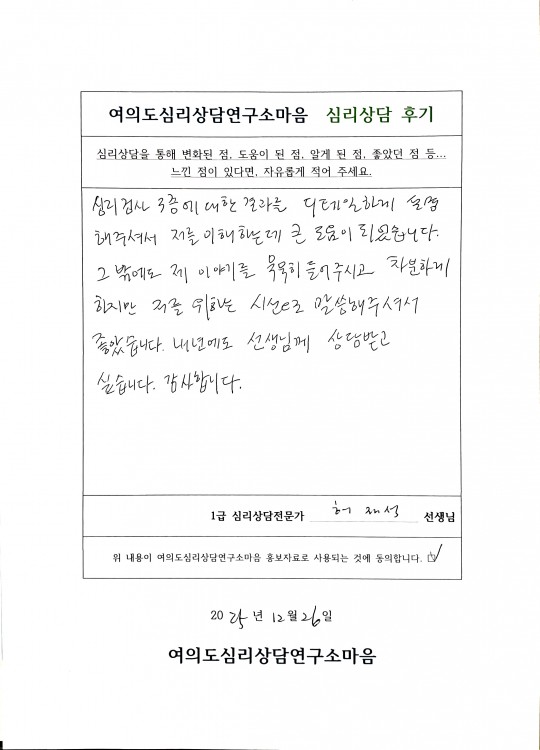 여의도심리상담연구소마음 심리상담 후기
심리상담을 통해 변화된 점, 도움이 된 점, 알게 된 점, 좋았던 점 등...
느낀 점이 있다면, 자유롭게 적어 주세요.
심리검사 3종에 대한 결과를 디테일하게 설명
해주셔서 저를 이해하는데 큰 도움이 되었습니다.
그 밖에도 제 이야기를 묵묵히 들어주시고 차분하게
하지만 저를 위하는 시선으로 말씀해주셔서
좋았습니다. 내년에도 선생님께 상담받고
싶습니다. 감사합니다.
1급 심리상담전문가 허재석 선생님
위 내용이 여의도심리상담연구소마음 홍보자료로 사용되는 것에 동의합니다. ☑
2025년 12월 26일
여의도심리상담연구소마음